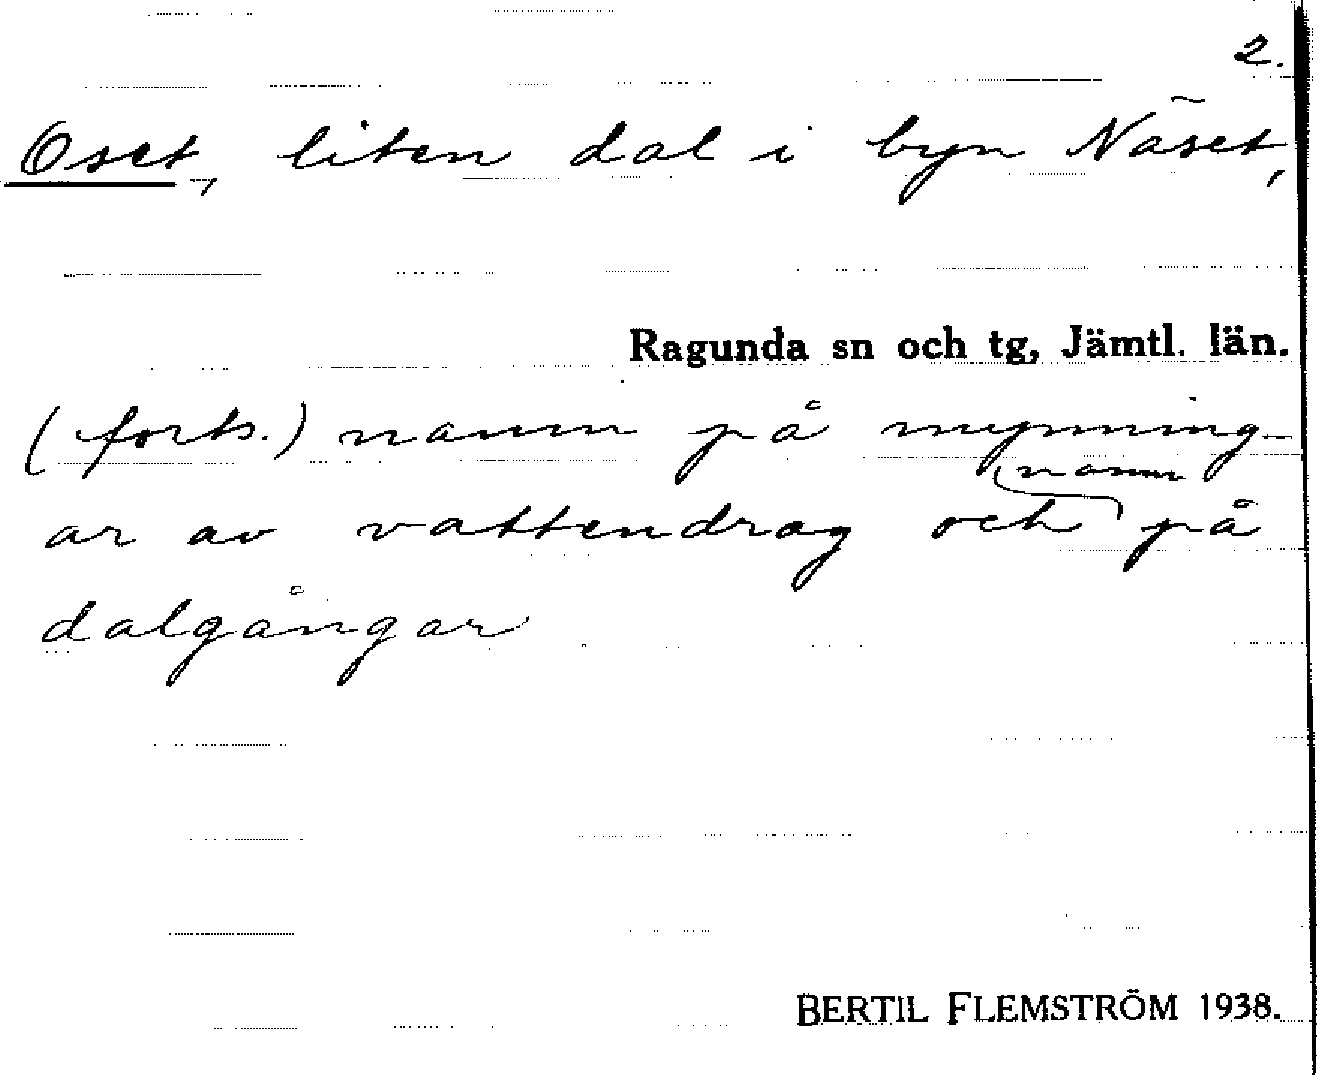 2.
Oset, liten dal i byn Näset,
Ragunda sn och tg, Jämtl. län.
(forts.) namn på mynning-
ar av vattendrag och namn på
dalgångar
BERTIL FLEMSTRÖM 1938.